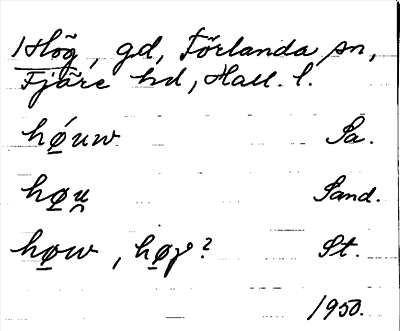 1 Hög, gd, Förlanda sn,
Fjäre hd, Hall. l.
hǿ̠uw Sa.
hø̠u̯ Sand.
hø̠w, hø̠γ? St.
1950.